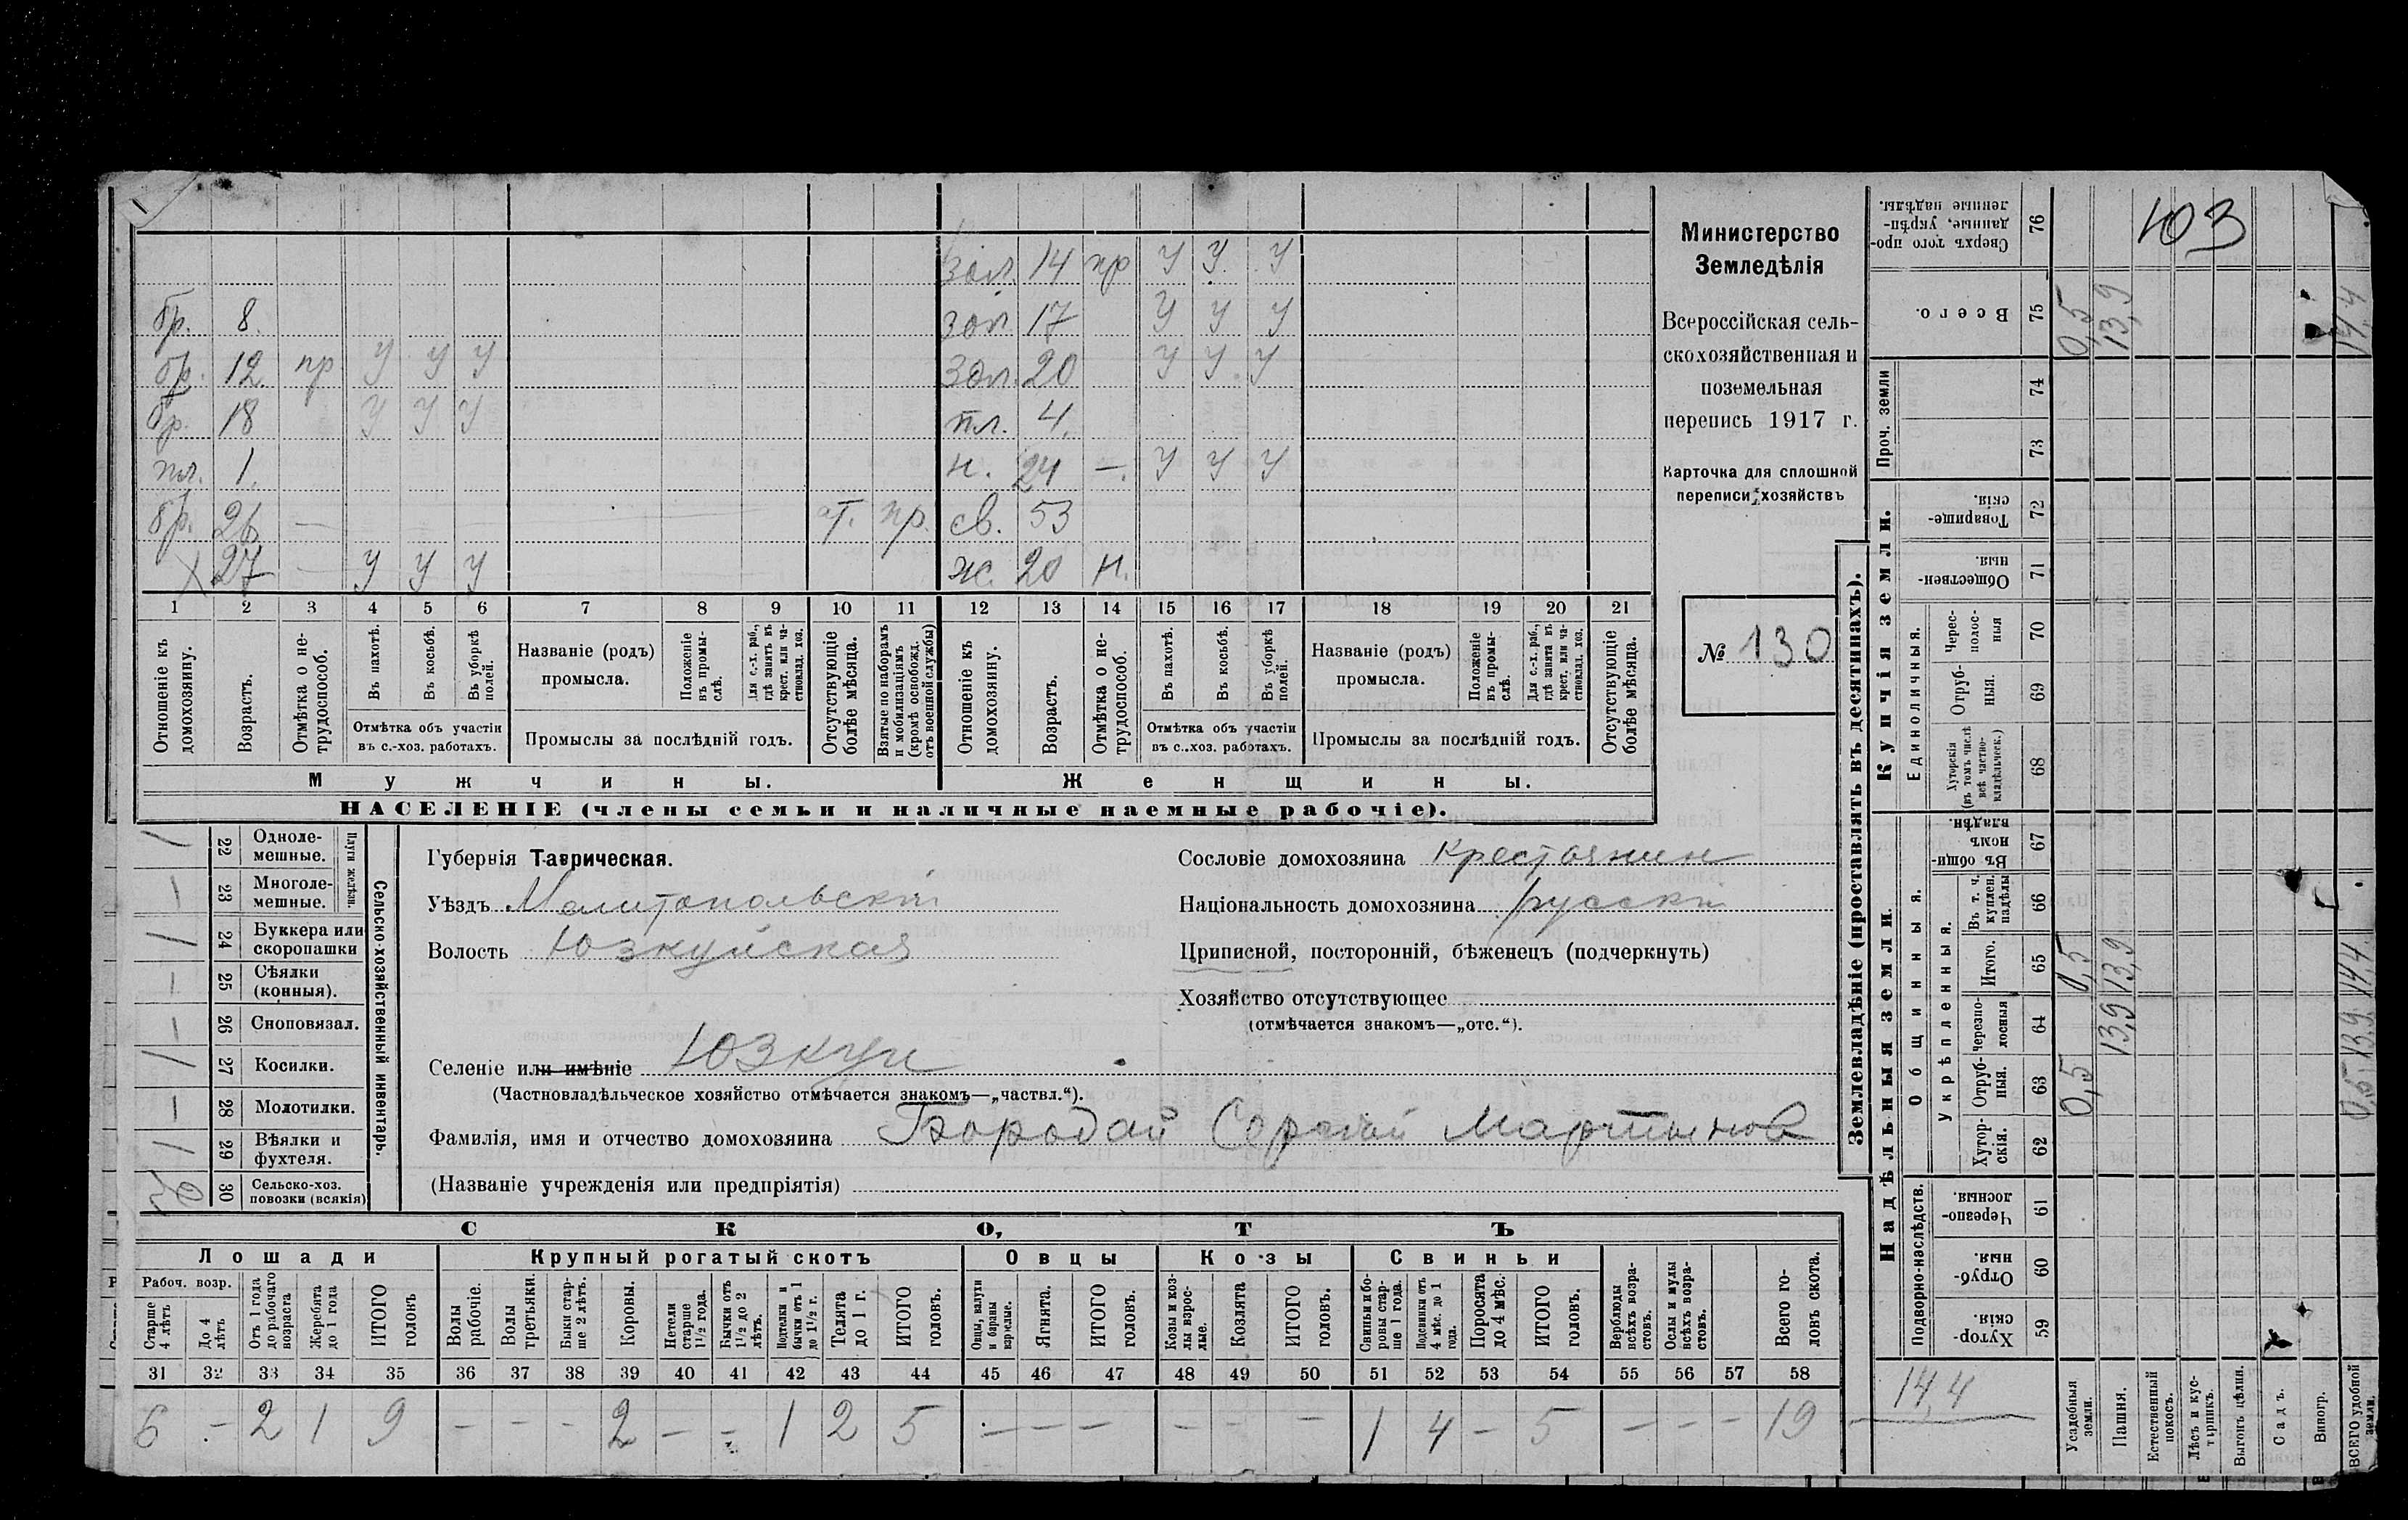 103
зол. 14 пр У У У
бр. 8. зол. 17 У У У
бр. 12 пр У У У зол. 20 У У У
бр. 18 У У У пл. 4.
пл. 1. н. 24 —. У У У
бр. 26 — от. пр. св. 53
Х 27 — У У У ж. 20 н.
1 2 3 4 5 6 7 8 9 10 11 12 13 14 15 16 17 18 19 20 21
Отношеніе къ домохозяину.
Возрастъ.
Отмѣтка о нетрудоспособ.
Въ пахотѣ.
Въ косьбѣ.
Въ уборкѣ полей.
Отмѣтка объ участіи
въ с.-хоз. работахъ.
Названіе (родъ)
промысла.
Положеніе въ промыслѣ.
Для с.-х. раб., гдѣ занятъ въ крест. или частновлад. хоз.
Промыслы за послѣдній годъ.
Отсутствующіе болѣе мѣсяца.
Взятые по наборамъ и мобилизаціямъ (кромѣ освобожд. отъ военной службы)
Отношеніе къ домохозяину.
Возрастъ.
Отмѣтка о нетрудоспособ.
Въ пахотѣ.
Въ косьбѣ.
Въ уборкѣ полей.
Отмѣтка объ участіи
въ с..хоз. работахъ.
Названіе (родъ)
промысла.
Положеніе въ промыслѣ.
Для с.-х. раб., гдѣ занята въ крест. или частновлад. хоз.
Промыслы за послѣдній годъ.
Отсутствующіе болѣе мѣсяца.
Мужчины. Женщины.
НАСЕЛЕНІЕ (члены семьи и наличные наемные рабочіе).
Министерство
Земледѣлія
Всероссійская сель-
скохозяйственная и
поземельная
перепись 1917 г.
Карточка для сплошной
переписи хозяйствъ
№ 130
Сельско-хозяйственный инвентарь.
Плуги желѣзн.
1 22 Одноле-
мешные.
— 23 Многоле-
мешные.
1 24 Буккера или
скоропашки
— 25 Сѣялки
(конныя).
— 26 Сноповязал.
1 27 Косилки.
— 28 Молотилки.
1 29 Вѣялки и
фухтеля.
30 Сельско-хоз.
повозки (всякія)
Губернія Таврическая.
Уѣздъ Мелитопольскій
Волость Юзкуйская
Селеніе или имѣніе Юзкуи
(Частновладѣльческое хозяйство отмѣчается знакомъ—„частвл.“).
Фамилія, имя и отчество домохозяина Бородай Сергѣй Мартынов
(Названіе учрежденія или предпріятія)
Сословіе домохозяина крестьянин
Національность домохозяина русскій
Приписной, посторонній, бѣженецъ (подчеркнуть)
Хозяйство отсутствующее
(отмѣчается знакомъ—„отс.“).
СКОТЪ
Лошади Крупный рогатый скотъ Овцы Козы Свиньи
Рабоч. возр.
Старше 4 лѣтъ
До 4 лѣтъ
Отъ 1 года до рабочаго возраста
Жеребята до 1 года
ИТОГО головъ
Волы рабочіе.
Волы третьяки.
Быки старше 2 лѣтъ.
Коровы.
Нетели старше 1 1/2 года.
Бычки отъ 1 1/2 до 2 лѣтъ.
Подтелки и бычки отъ 1 до 1 1/2 г.
Телята до 1 г.
ИТОГО головъ.
Овцы, валухи и бараны взрослые.
Ягнята.
ИТОГО головъ.
Козы и козлы взрослые.
Козлята
ИТОГО головъ.
Свиньи и боровы старше 1 года.
Подсвинки отъ 4 мѣс. до 1 года.
Поросята до 4 мѣс.
ИТОГО головъ.
Верблюды всѣхъ возрастовъ.
Ослы и мулы всѣхъ возрастовъ.
Всего головъ скота.
31 32 33 34 35 36 37 38 39 40 41 42 43 44 45 46 47 48 49 50 51 52 53 54 55 56 57 58
6 — 2 1 9 — — — 2 — — 1 2 5 — — — — — — 1 4 — 5 — — — 19
Землевладѣніе (проставлять въ десятинахъ).
Надѣльныя земли. Купчія земли.
Подворно-наслѣдств.
Общинныя.
Укрѣпленныя.
Единоличныя.
Проч. земли
Хуторскія 59
Отрубныя. 60
Черезполосныя. 61
Хуторскія. 62
Отрубныя. 63
Черезполосныя 64
Итого. 65
Въ т. ч. куплен. надѣлы 66
Въ общинномъ владѣн. 67
Хуторскія (въ томъ числѣ всѣ частновладѣльческ.) 68
Отрубныя. 69
Чересполосныя 70
Общественныя. 71
Товарищескія. 72
73
74
Всего. 75
Сверхъ того проданные, укрѣпленные надѣлы. 76
Усадебныя земли. 0,5 0,5 0,5
Пашня. 13,9 13,9 13,9
Естественный покосъ.
Лѣсъ и кустарникъ.
Выгонъ цѣлин.
Садъ.
Виногр.
ВСЕГО удобной земли. 0,5 13,9 14,4 14,4
14,4